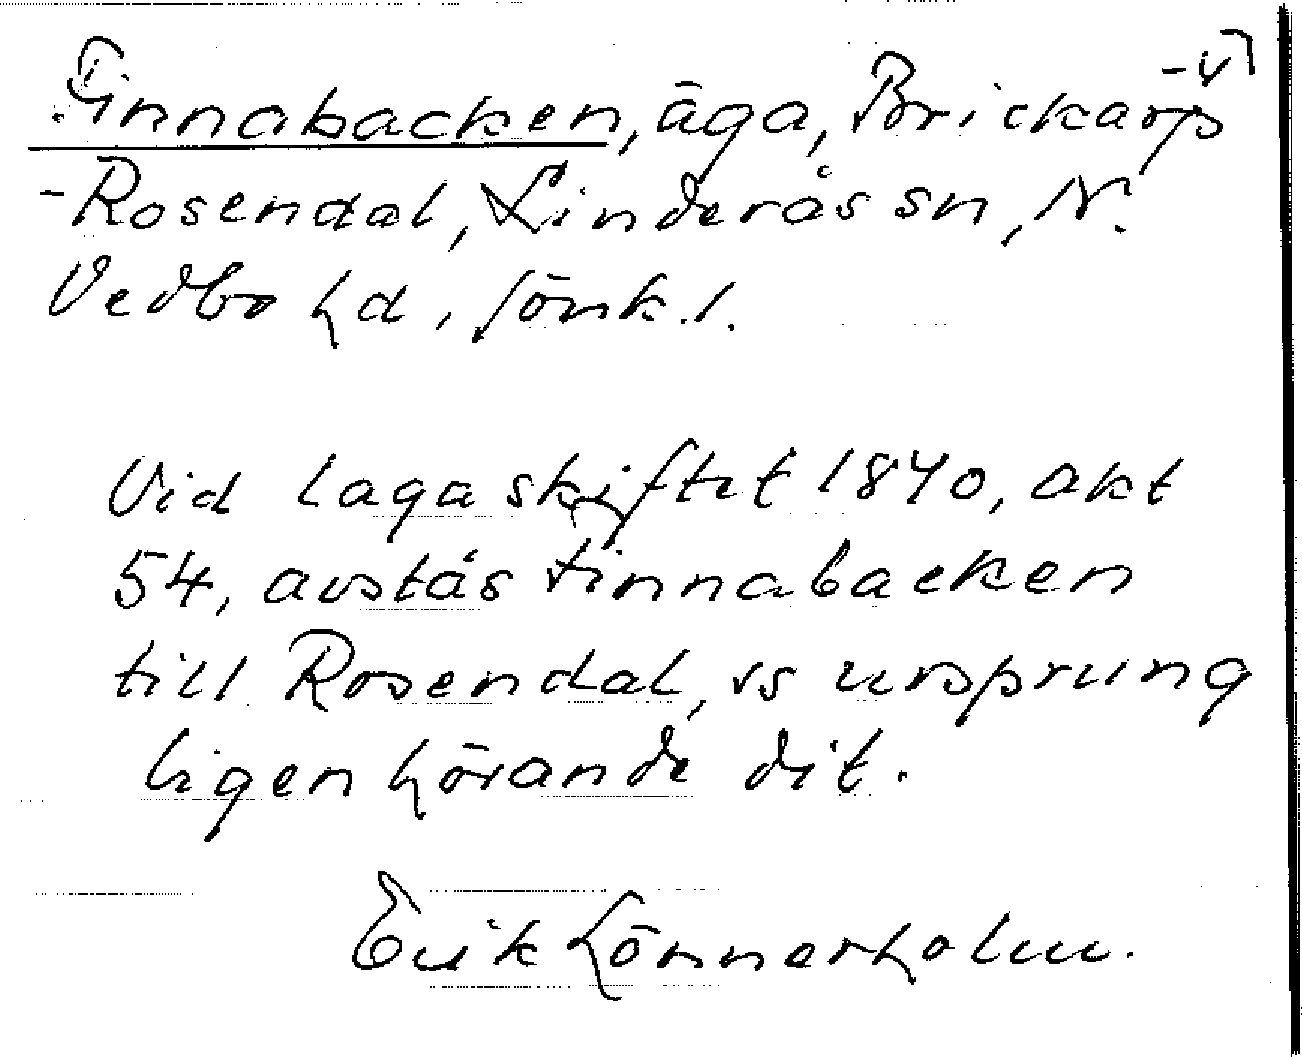 Finnabacken, äga, Brickarp
-Rosendal, Linderås sn, N.
Vedbo hd, Jönk. l.
Vid laga skiftet 1840, akt
54, avstås Finnabacken
till Rosendal, ss ursprung
ligen hörande dit.
Erik Lönnerholm.